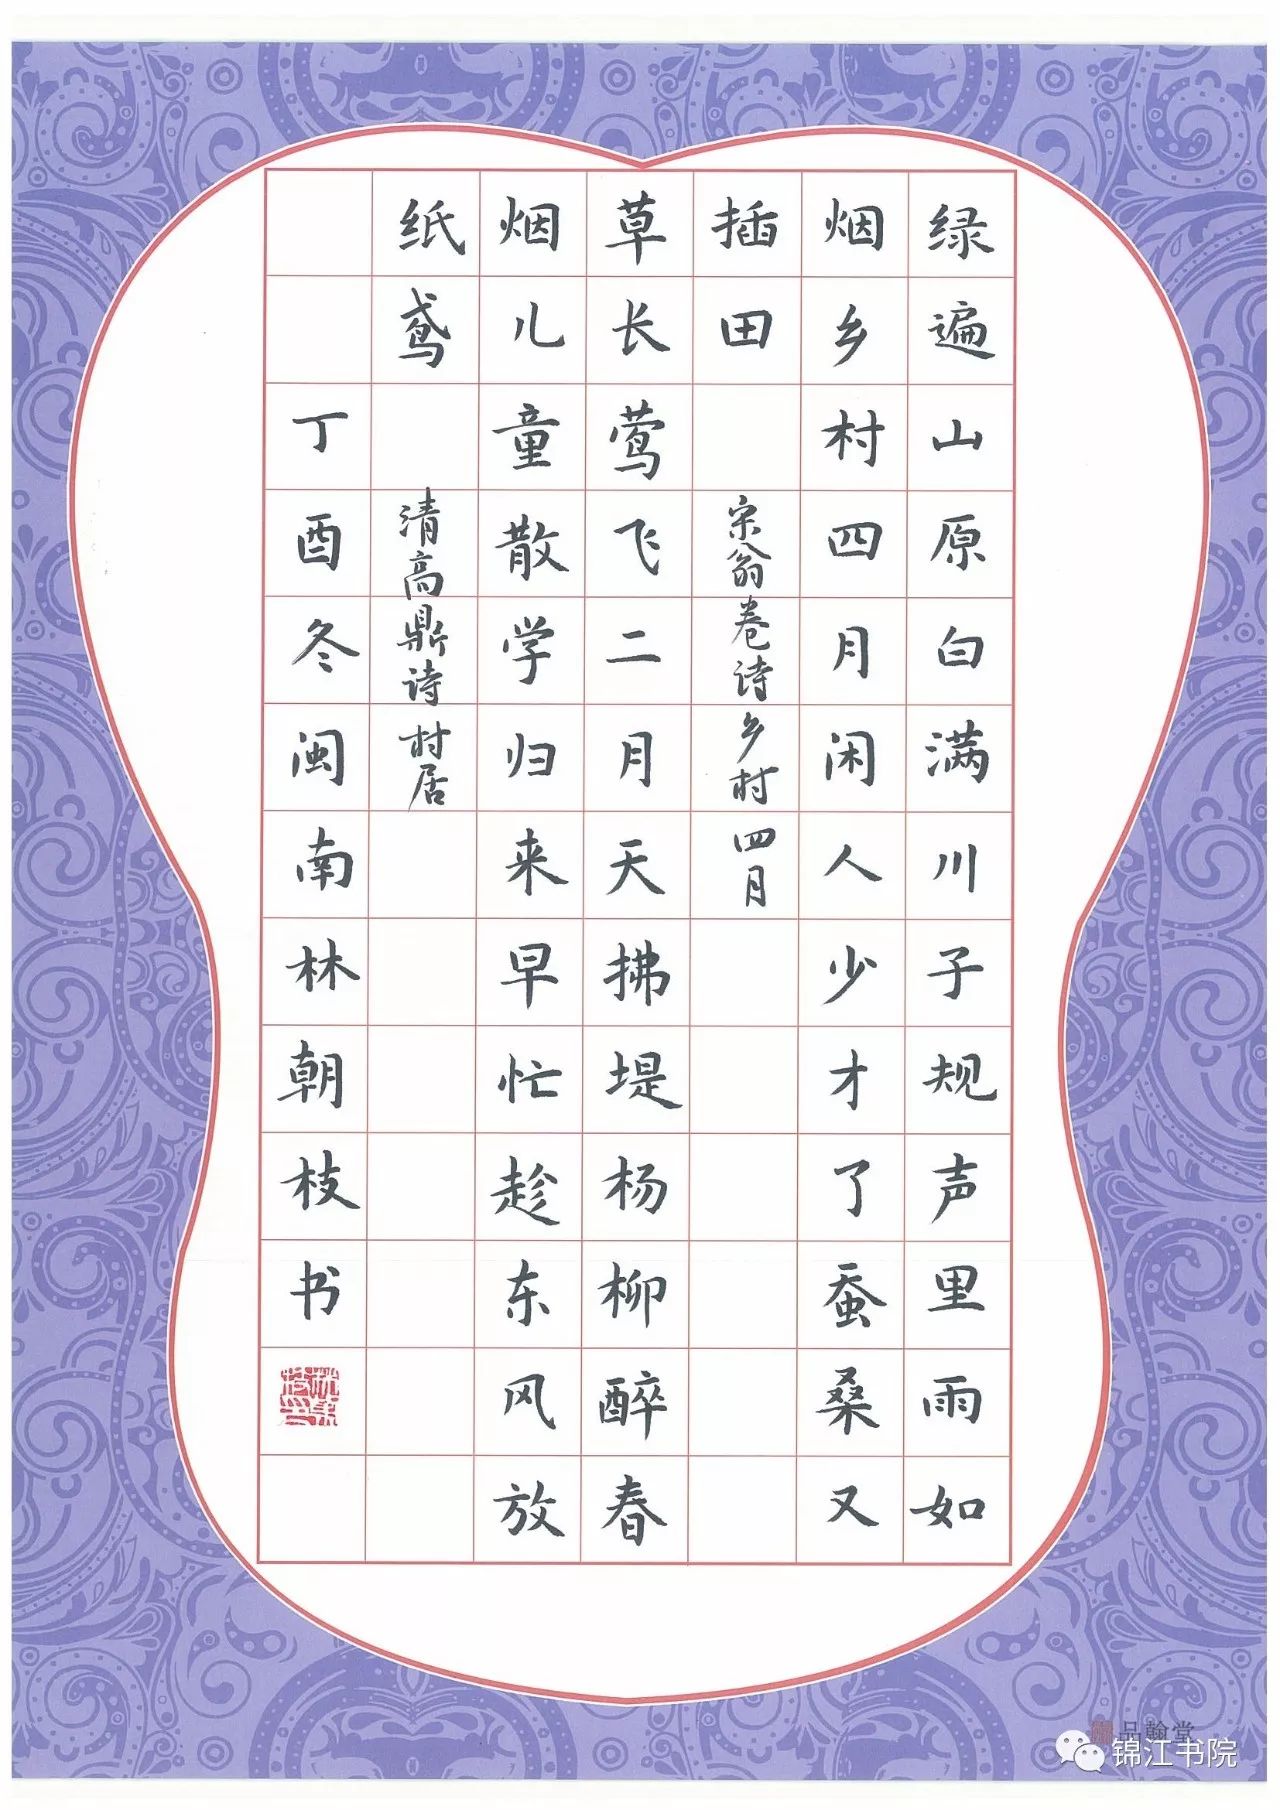 绿遍山原白满川子规声里雨如
烟乡村四月闲人少才了蚕桑又
插田 宋翁卷诗 乡村四月
草长莺飞二月天拂堤杨柳醉春
烟儿童散学归来早忙趁东风放
纸鸢 清高鼎诗 村居
丁酉冬闽南林朝枝书
品翰堂
锦江书院